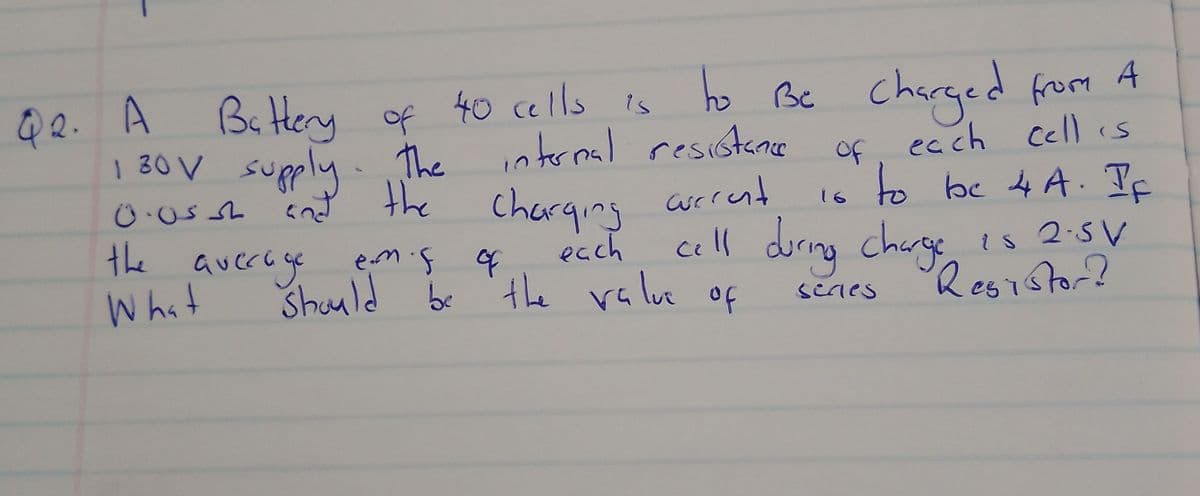 Q2. A Battery of 40 cells is to Be charged from A
130V supply. The internal resistance of each cell is
0.05Ω and the charging current is to be 4A. If
the average e.m.f of each cell during charge is 2.5V
What should be the value of series Resistor?